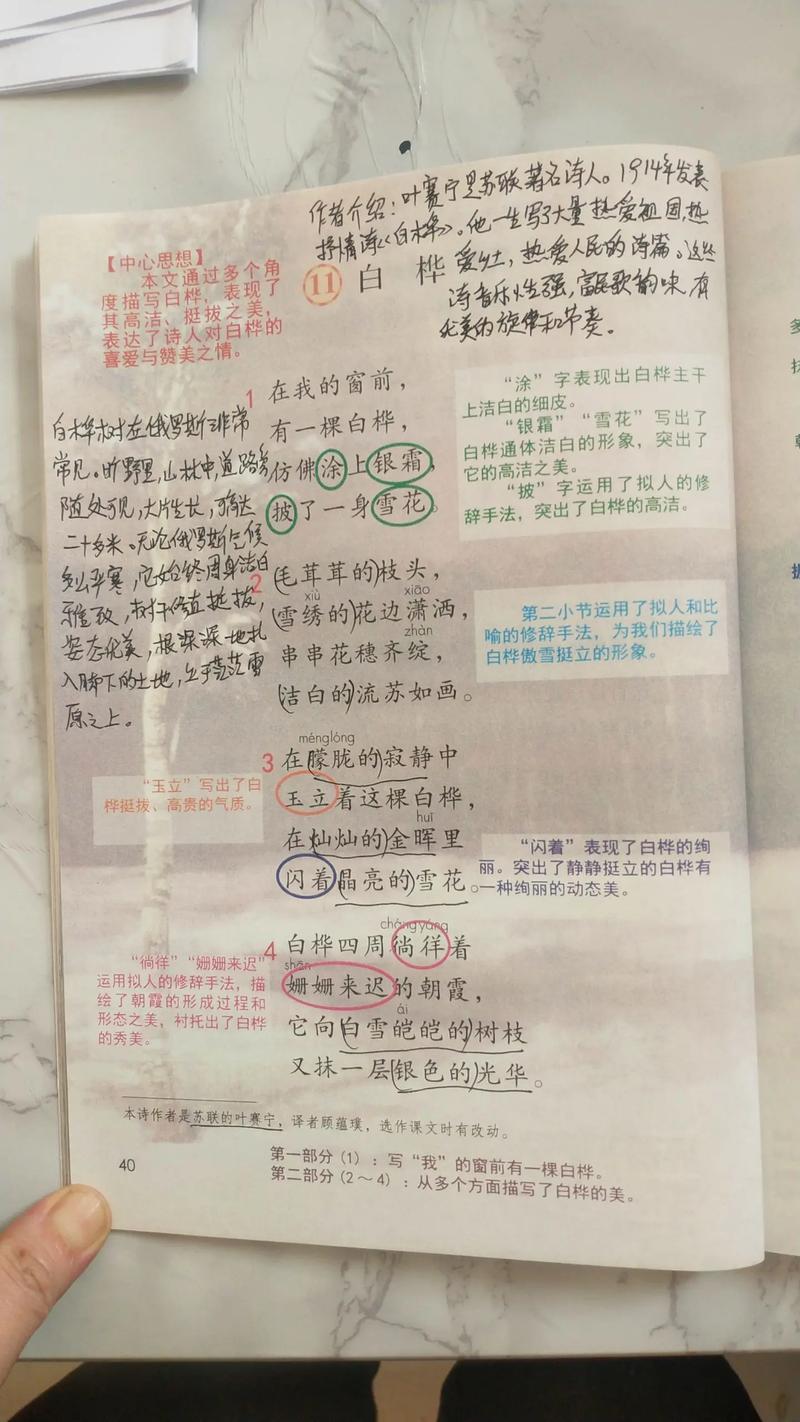 作者介绍：叶赛宁是苏联著名诗人。1914年发表
抒情诗《白桦》。他一生写了大量热爱祖国，热
爱
，热爱人民的诗篇。这些
诗音乐性强，富民歌韵味，有
优美的旋律和节奏。
【中心思想】
本文通过多个角
度描写白桦，表现了
其高洁、挺拔之美，
表达了诗人对白桦的
喜爱与赞美之情。
11 白桦
1 在我的窗前，
有一棵白桦，
仿佛涂上银霜，
披了一身雪花。
“涂”字表现出白桦主干
上洁白的细皮。
“银霜”“雪花”写出了
白桦通体洁白的形象，突出了
它的高洁之美。
“披”字运用了拟人的修
辞手法，突出了白桦的高洁。
白桦树在俄罗斯非常
常见。旷野里，山林中，道路旁
随处可见，大片生长，可高达
二十多米。无论俄罗斯气候
多么严寒，它始终周身洁白
雅致，树干修直挺拔，
姿态优美，根深深地扎
入脚下的土地，立于茫茫雪
原之上。
2 (毛茸茸的)枝头，
xiù xiāo
(雪绣的)花边潇洒，
zhàn
串串花穗齐绽，
(洁白的)流苏如画。
第二小节运用了拟人和比
喻的修辞手法，为我们描绘了
白桦傲雪挺立的形象。
ménglóng
3 在(朦胧的)寂静中
玉立着这棵白桦，
huī
在(灿灿的)金晖里
闪着(晶亮的)雪花。
“玉立”写出了白
桦挺拔、高贵的气质。
“闪着”表现了白桦的绚
丽。突出了静静挺立的白桦有
一种绚丽的动态美。
cháng yáng
4 白桦四周徜徉着
shān
姗姗来迟的朝霞，
ái
它向(白雪皑皑的)树枝
又抹一层(银色的)光华。
“徜徉”“姗姗来迟”
运用拟人的修辞手法，描
绘了朝霞的形成过程和
形态之美，衬托出了白桦
的秀美。
本诗作者是苏联的叶赛宁，译者顾蕴璞，选作课文时有改动。
40
第一部分(1)：写“我”的窗前有一棵白桦。
第二部分(2～4)：从多个方面描写了白桦的美。